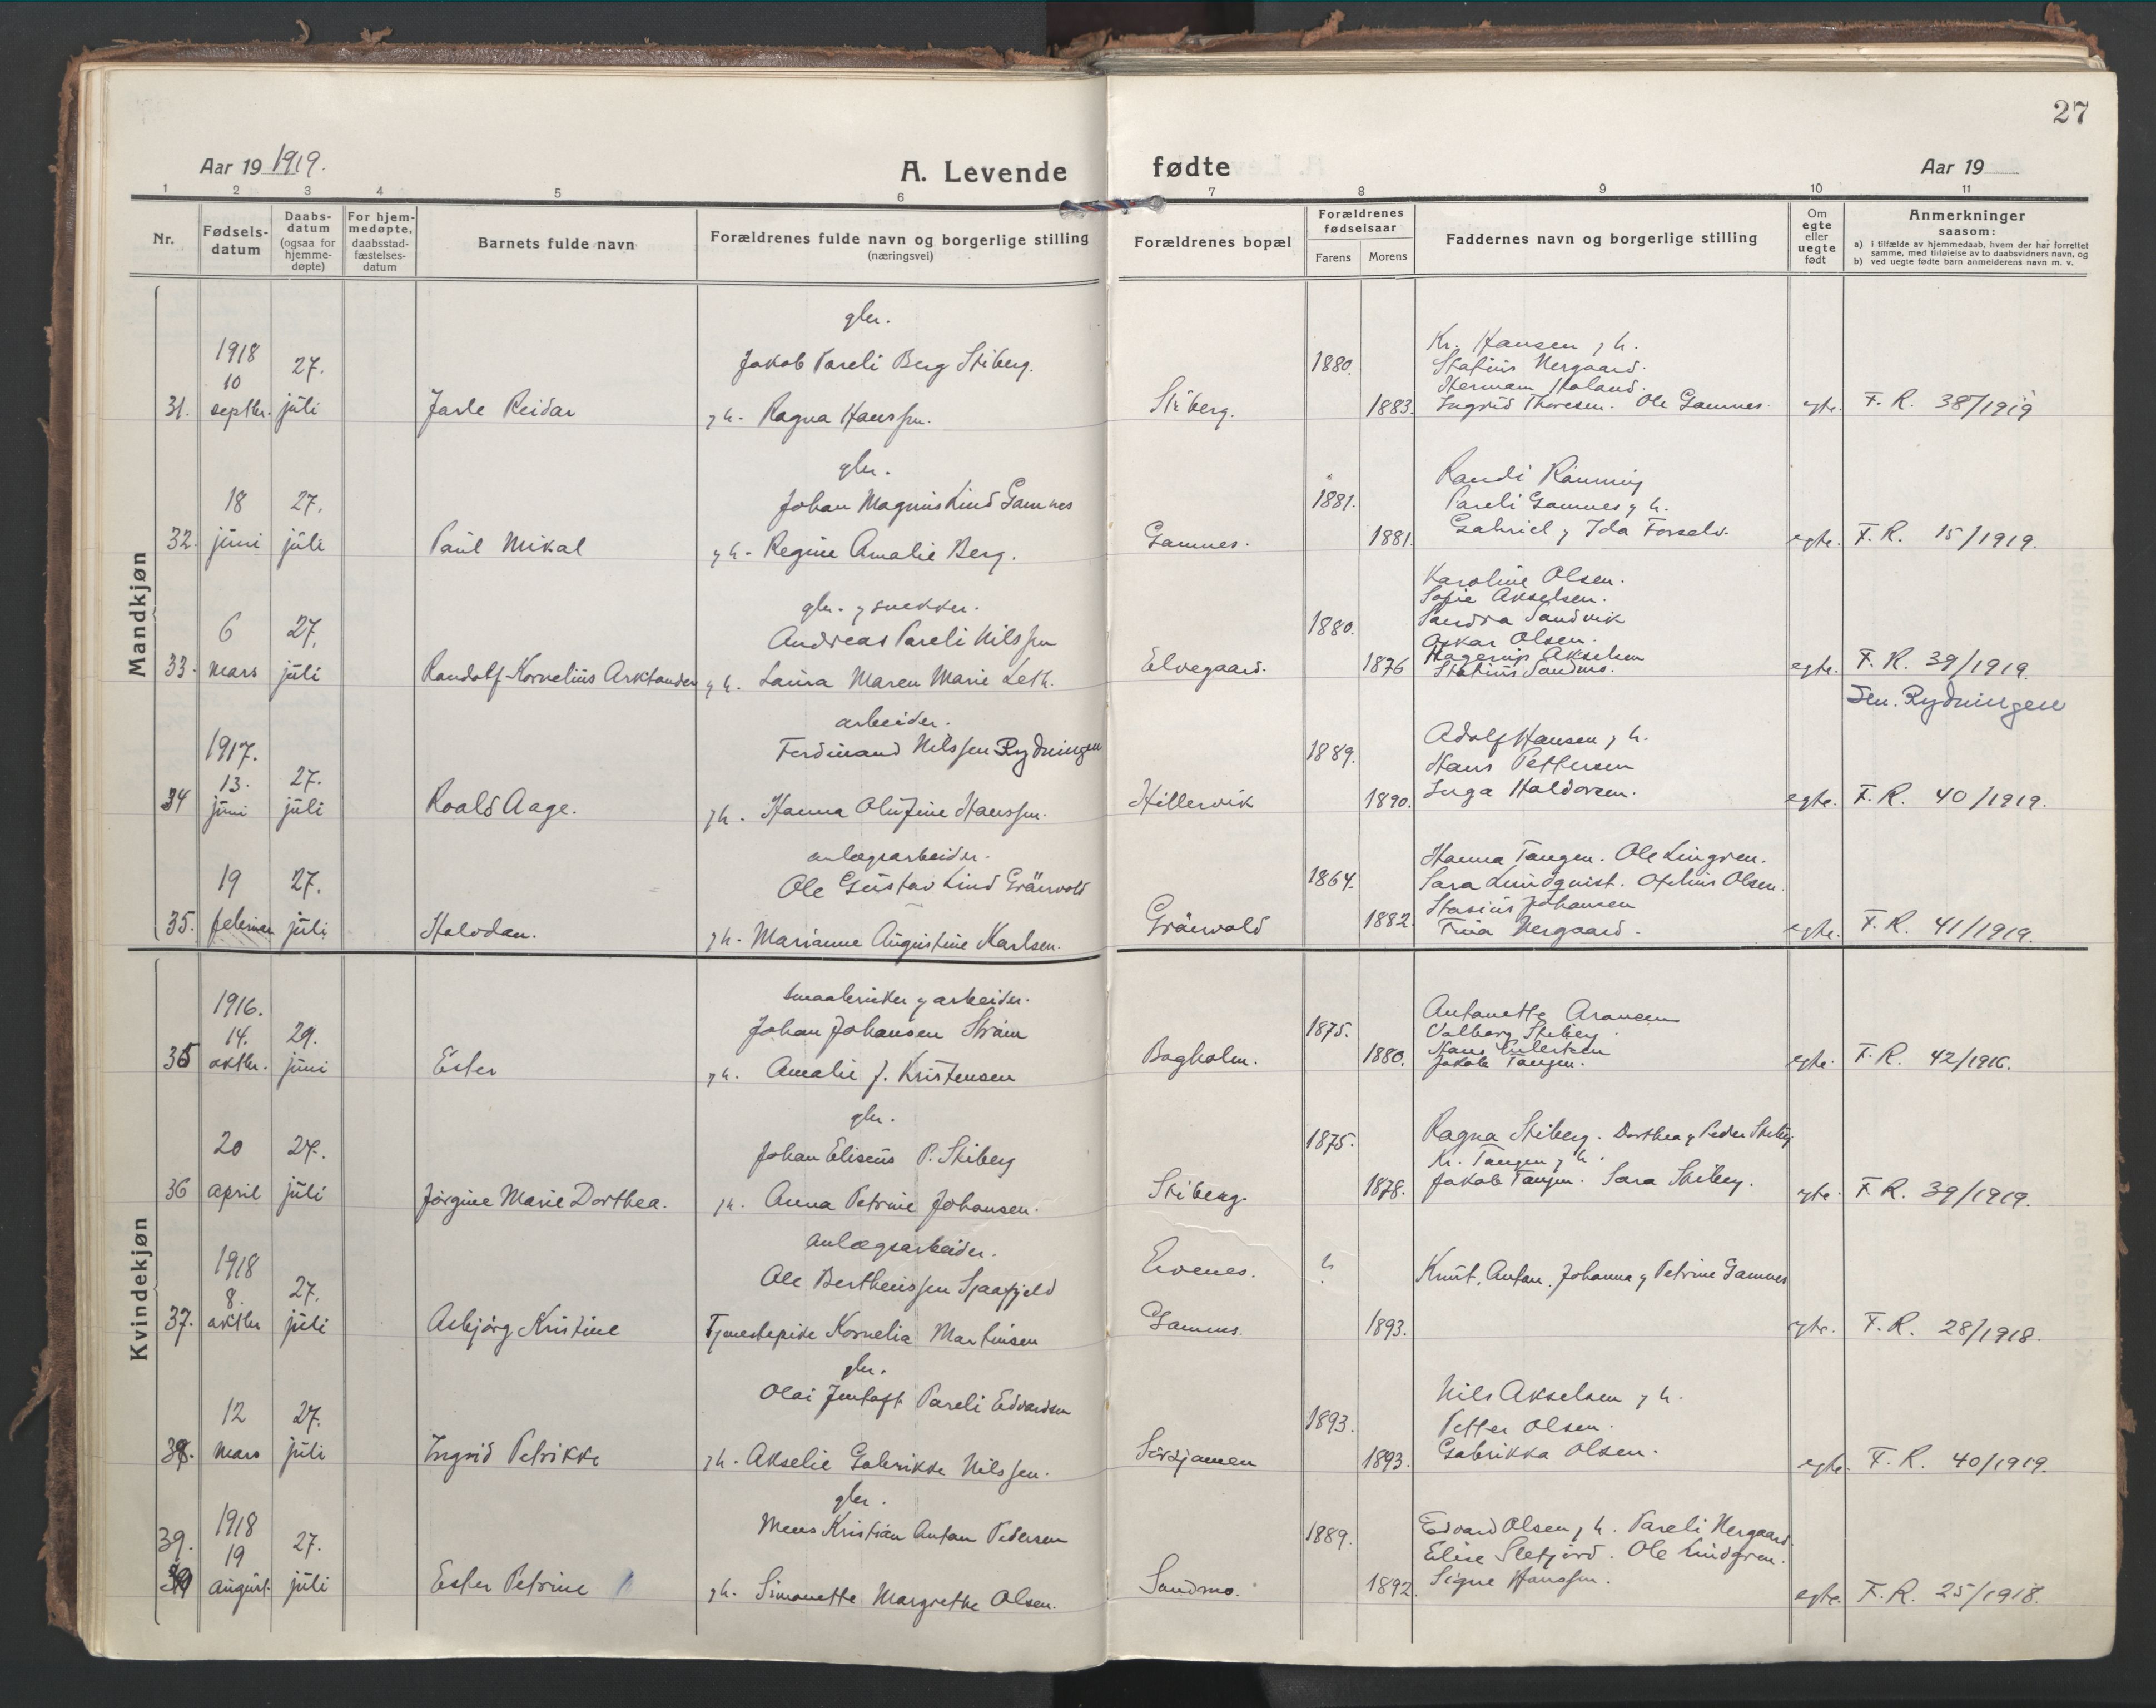 27
Aar 19 1919.
A. Levende fødte
Aar 19
1 2 3 4 5 6 7 8 9 10 11
Nr.
Fødsels-
datum
Daabs-
datum
(ogsaa for
hjemme-
døpte)
For hjem-
medøpte,
daabsstad-
fæstelses-
datum
Barnets fulde navn
Forældrenes fulde navn og borgerlige stilling
(næringsvei)
Forældrenes bopæl
Forældrenes
fødselsaar
Farens Morens
Faddernes navn og borgerlige stilling
Om
egte
eller
uegte
født
Anmerkninger
saasom:
a) i tilfælde av hjemmedaab, hvem der har forrettet
samme, med tilføielse av to daabsvidners navn, og
b) ved uegte fødte barn anmelderens navn m. v.
Mandkjøn
31.
1918
10
septbr.
27.
juli
Jarle Reidar
gbr.
Jakob Pareli Berg Skiberg.
g h. Ragna Hanssen.
Skiberg.
1880.
1883.
Kr. Hansen g h.
Statius Nergaard.
Herman Haland.
Ingrid Thoresen. Ole Gamnes.
egte.
F. R. 38/1919
32.
18
juni
27.
juli
Paul Mikal
gbr.
Johan Magnus Lind Gamnes
g h. Regine Amalie Berg.
Gamnes.
1881.
1881.
Randi Rönning
Pareli Gamnes g h.
Gabriel g Ida Forselv.
egte.
F. R. 15/1919.
33.
6
mars
27.
juli
Randolf Kornelius Arktander
gbr. g snekker.
Andreas Pareli Nilssen
g h. Laura Maren Marie Leth.
Elvegaard.
1880.
1876
Karoline Olsen.
Sofie Akselsen.
Sandra Sandvik
Oskar Olsen.
Hagerup Akselsen
Statius Sandmo.
egte.
F. R. 39/1919.
Sen. Rydningen
34
1917.
13.
juni
27.
juli
Roald Aage.
arbeider.
Ferdinand Nilssen Rydningen
g h. Hanna Olufine Hanssen.
Hillervik
1889.
1890.
Adolf Hansen g h.
Hans Pettersen
Inga Haldorsen.
egte.
F. R. 40/1919.
35.
19
februar
27.
juli
Halvdan.
anlægsarbeider.
Ole Gustav Lind Gränvold
g h. Marianne Augustine Karlsen.
Gränvold
1864.
1882.
Hanna Tangen. Ole Lingren.
Sara Lundquist. Ofelius Olsen.
Stasius Johansen
Tina Nergaard.
egte.
F. R. 41/1919.
Kvindekjøn
35
1916.
14.
oktbr.
29.
juni
Ester
smaabruker g arbeider.
Johan Johansen Ström
g h. Amalie J. Kristensen
Bogholm.
1875.
1880.
Antonette Aronsen
Valborg Skiberg
Jakob Tangen.
egte.
F. R. 42/1916.
36
20
april
27.
juli
Jörgine Marie Dorthea.
gbr.
Johan Eliseus P. Skiberg
g h. Anna Petrine Johansen.
Skiberg.
1875.
1878.
Ragna Skiberg. Dorthea g Peder Skiberg
Kr. Tangen g h.
Jakob Tangen. Sara Skiberg.
egte.
F. R. 39/1919.
37.
1918
8.
oktbr
27.
juli
Asbjörg Kristine
anlægsarbeider.
Ole Bertheussen Sjaafjeld
Tjenestepike Kornelia Martinsen
Evenes.
Gamnes.
?
1893.
Knut, Anton, Johanna g Petrine Gamnes
egte.
F. R. 28/1918.
38.
12
mars
27.
juli
Ingrid Petrikke
gbr.
Olai Jentoft Pareli Edvardsen
g h. Akselie Gabrikke Nilssen.
1893.
1893.
Nils Akselsen g h.
Petter Olsen.
Gabrikka Olsen.
egte.
F. R. 40/1919.
39.
1918
19
august.
27.
juli
Ester Petrine
gbr.
Mens Kristian Anton Pedersen
g h. Simonette Margrethe Olsen.
Sandmo.
1889.
1892.
Edvard Olsen g h. Pareli Nergaard.
Elise Sletjord. Ole Lindgren.
Signe Hanssen.
egte.
F. R. 25/1918.